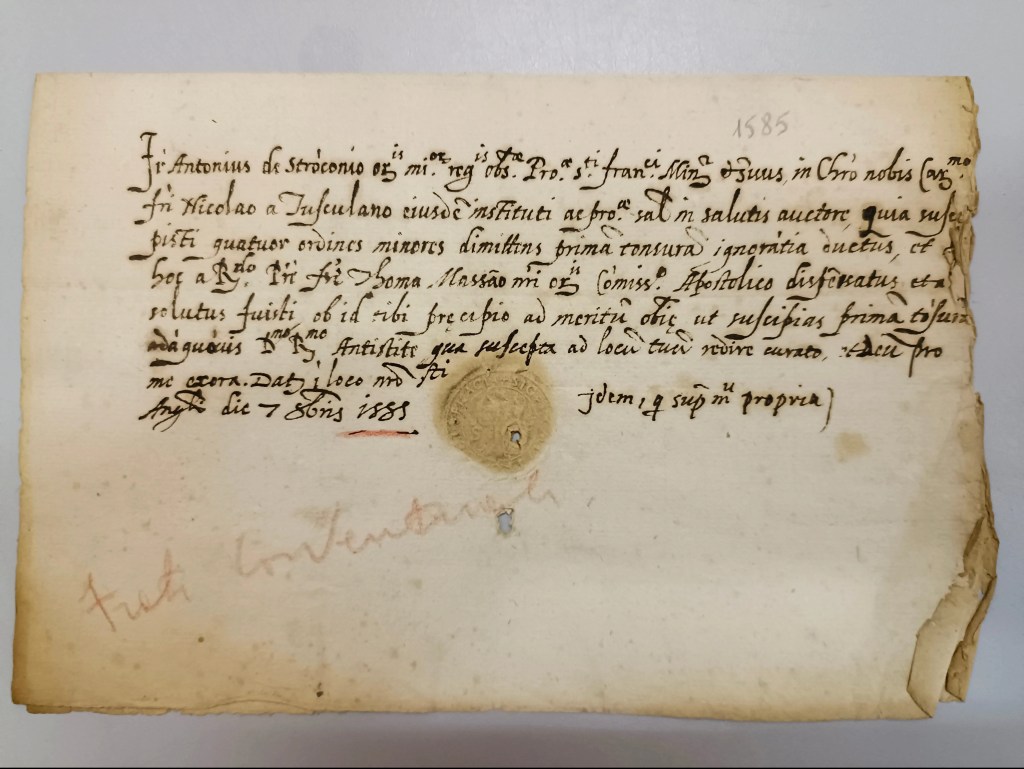 1585
Fr Antonius de Stroconio oris mi.or regis obs.æ Pro.æ s.ti fran.ci Minr et suus, in Chro nobis Carmo.
fri Nicolao a Tusculano eiusdē instituti ac pro.æ sal in salutis auctore, quia susce
pisti quatuor ordines minores dimittens primā tonsurā, ignorātia ductus, et
hoc a Rdo. Prē frē Thoma nri oris Comiss.o Apostolico dispēsatus, et a
solutus fuisti, ob id tibi pręcipio ad meritū obię ut suscipias primā tōsurā
quovis Dmo Rmo Antistite, qua suscepta ad locū tuū redire curato, et Deū pro
me exora. Dat, ī loco nro sti
Angli die 7 8bris 1585
jdem, q supr mu propria
frati Conventuali